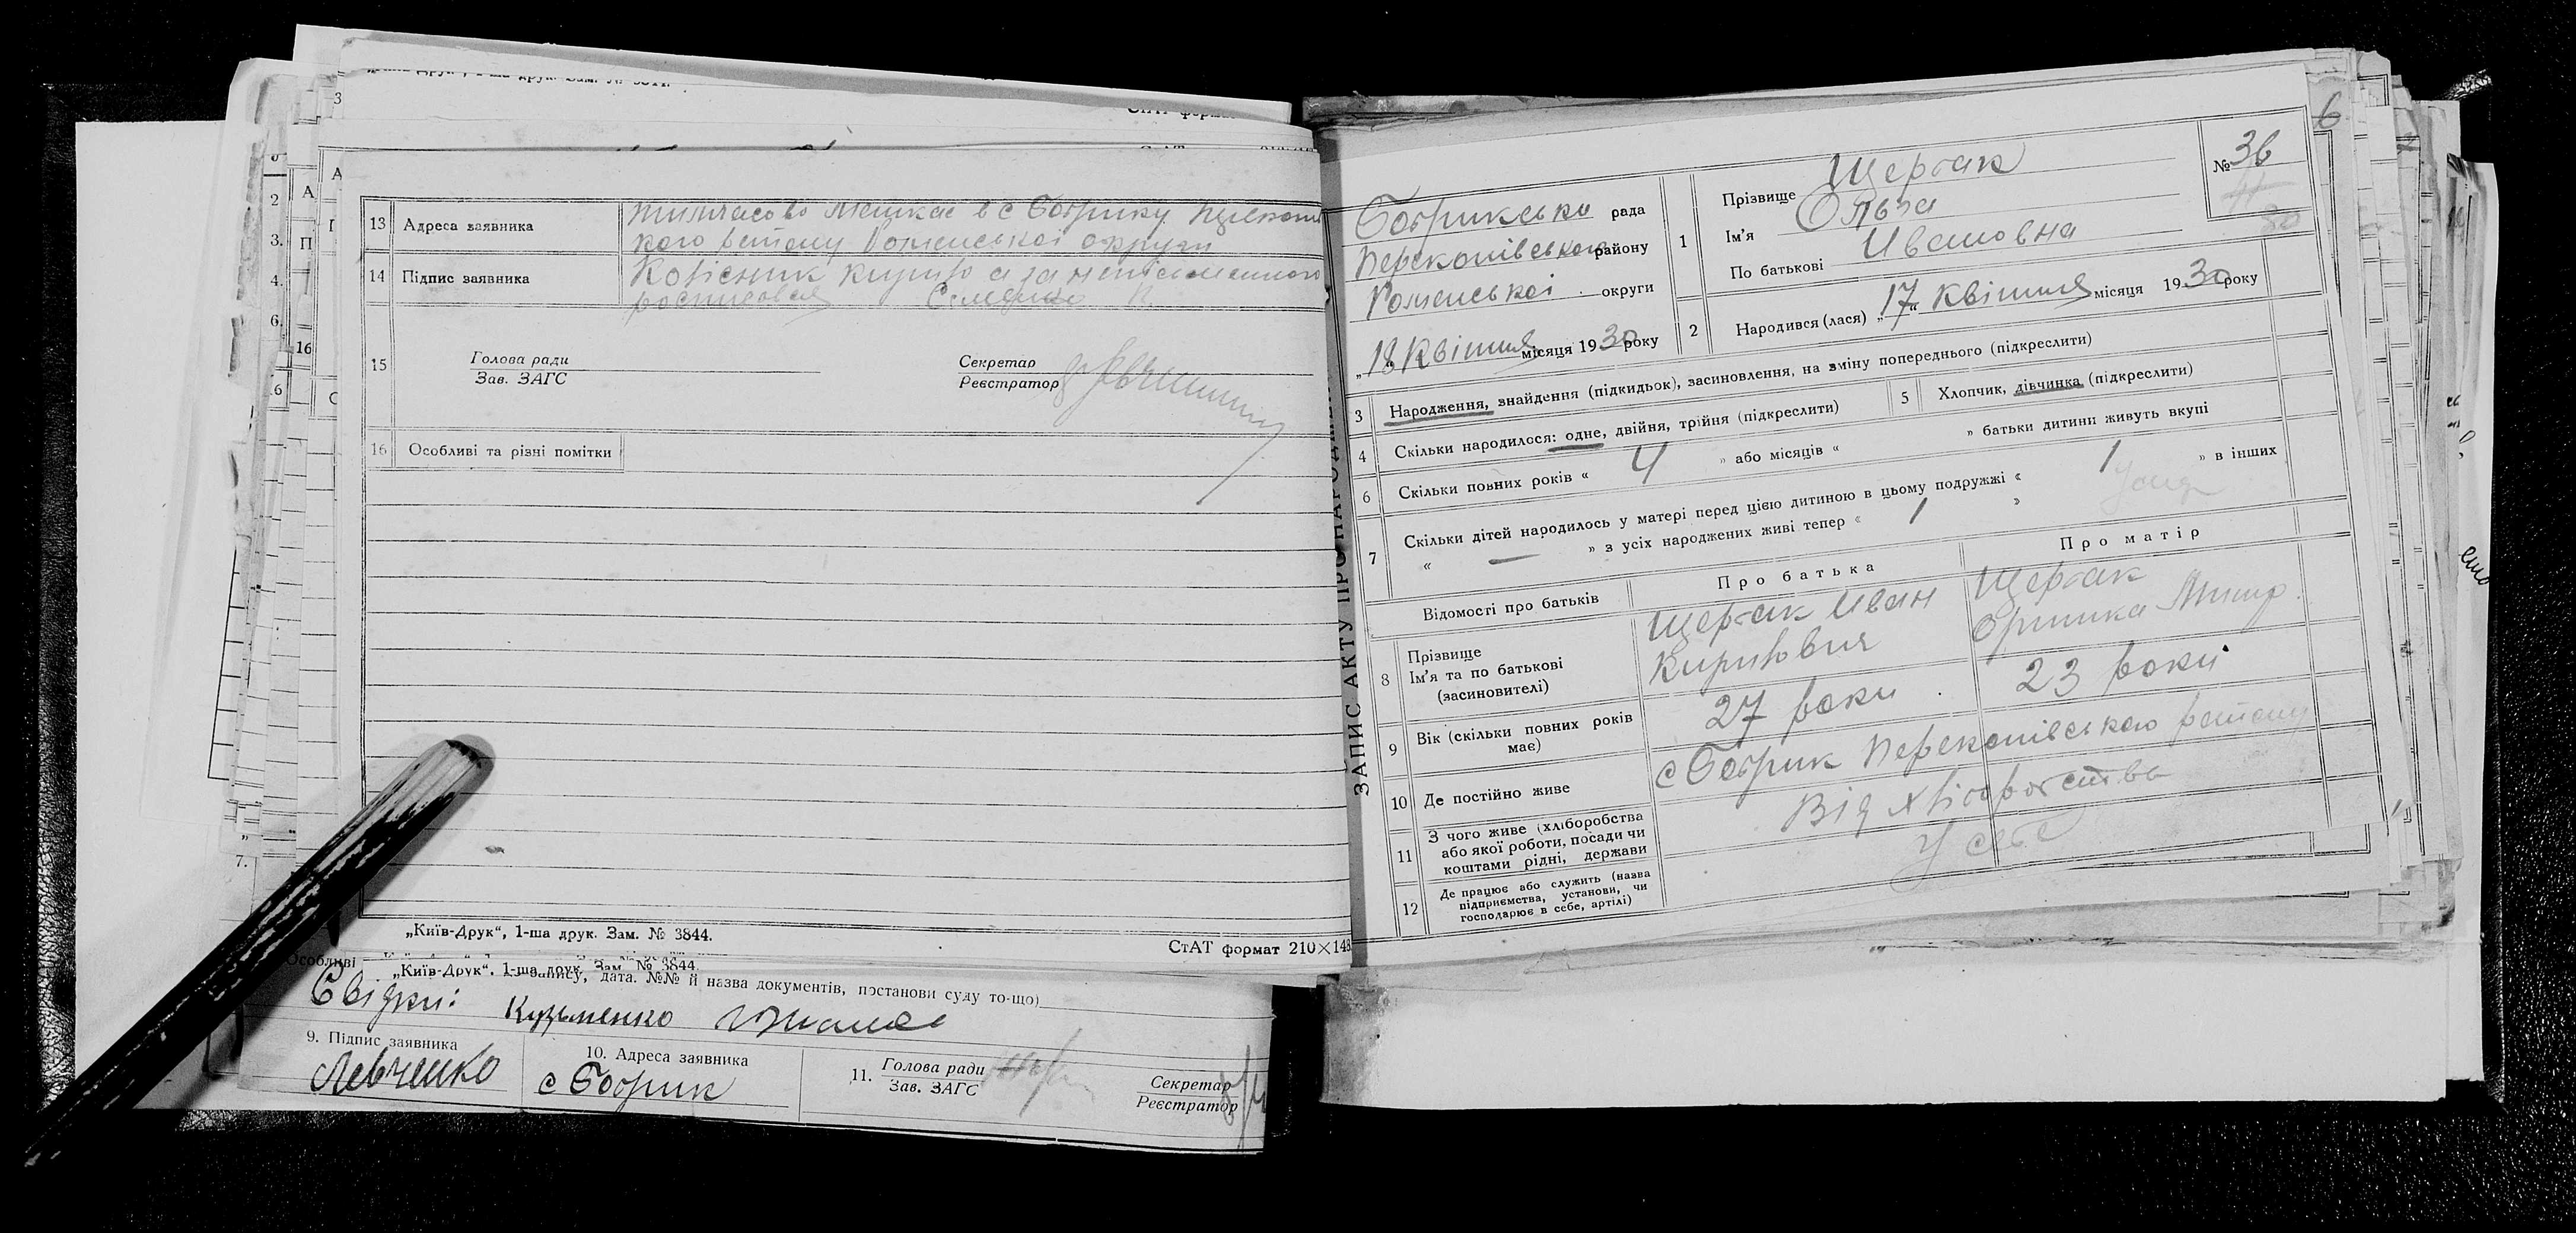 13 Адреса заявника тимчасово мешкає в с Бобрику
кого району Роменської округи
14 Підпис заявника Колісник Кирило а за неписьменного
росписався
15 Голова ради
Зав. ЗАГС
Секретар
Реєстратор
16 Особливі та різні помітки
„Київ-Друк“, 1-ша друк. Зам. № 3844.
СтАТ формат 210×148
„Київ-Друк“, 1-ша друк. Зам. № 3844.
Особливі
запису, дата. №№ й назва документів, постанови суду то-що)
Свідки: Кузьменко
9. Підпис заявника
Левченко
10. Адреса заявника
с Бобрик
11. Голова ради
Зав. ЗАГС
Секретар
Реєстратор
6
ЗАПИС АКТУ ПРО НАРОДЖЕН
Бобрикська рада
Перекопівського району
Роменської округи
„18 Квітня місяця 1930 року
1 Прізвище Щербак
Ім’я Ольга
По батькові Ивановна
№ 36
2 Народився (лася) „17“ Квітня місяця 1930 року
3 Народження, знайдення (підкидьок), засиновлення, на зміну попереднього (підкреслити)
4 Скільки народилося: одне, двійня, трійня (підкреслити)
5 Хлопчик, дівчинка (підкреслити)
6 Скільки повних років « 4 » або місяців « » батьки дитини живуть вкупі
7 Скільки дітей народилось у матері перед цією дитиною в цьому подружжі « 1 » в інших
« — » з усіх народжених живі тепер « 1 »
Відомості про батьків
Про батька
Про матір
8 Прізвище
Ім’я та по батькові
(засиновителі)
Щербак Иван
Кирилович
Щербак
Оришка
9 Вік (скільки повних років
має)
27 роки
23 роки
10 Де постійно живе
с Бобрик Перекопівського району
11 З чого живе (хліборобства
або якої роботи, посади чи
коштами рідні, держави
Від хліборобства
12 Де працює або служить (назва
підприємства, установи, чи
господарює в себе, артілі)
У себе